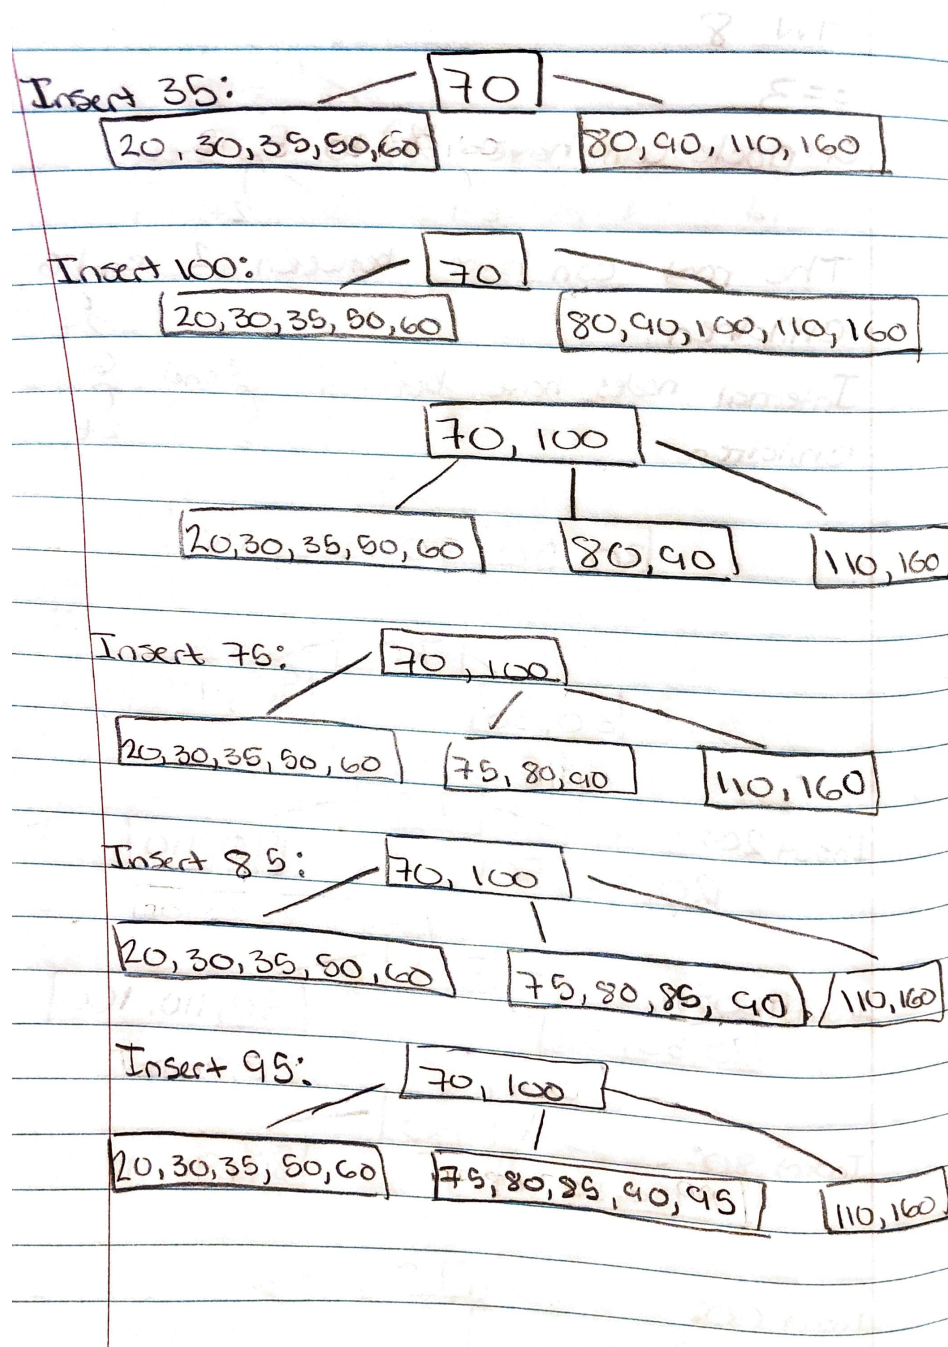 Insert 35:
70
20, 30, 35, 50, 60
80, 90, 110, 160
Insert 100:
70
20, 30, 35, 50, 60
80, 90, 100, 110, 160
70, 100
20, 30, 35, 50, 60
80, 90
110, 160
Insert 75:
70, 100
20, 30, 35, 50, 60
75, 80, 90
110, 160
Insert 85:
70, 100
20, 30, 35, 50, 60
75, 80, 85, 90
110, 160
Insert 95:
70, 100
20, 30, 35, 50, 60
75, 80, 85, 90, 95
110, 160